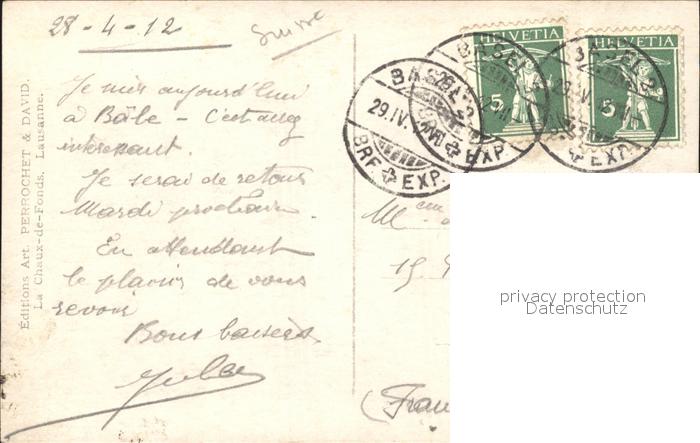 28-4-12
Suisse
Je suis aujourd'hui
à Bâle - C'est assez
intéressant.
Je serai de retour
Mardi prochain.
En attendant
le plaisir de vous
revoir
Bons baisers
Jules
Editions Art. PERROCHET & DAVID.
La Chaux-de-Fonds, Lausanne.
HELVETIA
5
HELVETIA
5
BASEL 2
29.IV.
BRF. EXP.
BASEL 2
EXP.
BASEL 2
EXP.
15
(Fran
privacy protection
Datenschutz